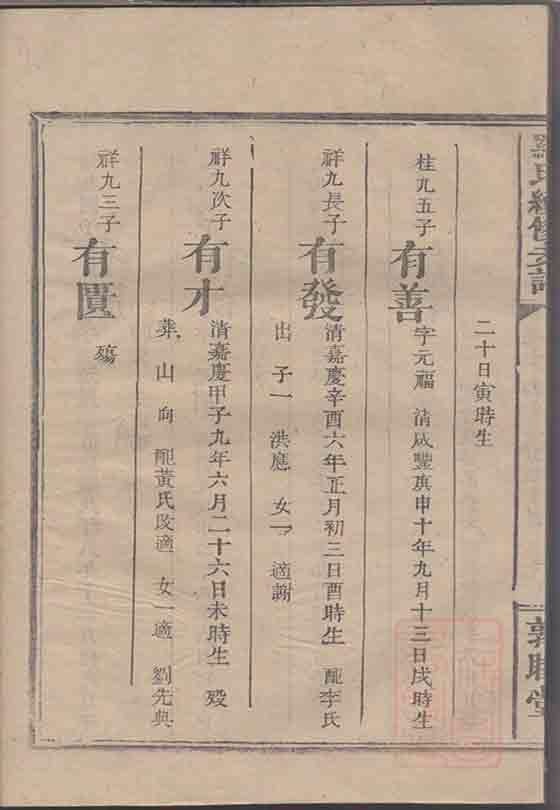 羅氏續修支譜
敦睦堂
二十日寅時生
桂九五子 有善 字元福 清咸豐庚申十年九月十三日戌時生
祥九長子 有發 清嘉慶辛酉六年正月初三日酉時生 配李氏
出 子一 洪應 女一 適謝
祥九次子 有才 清嘉慶甲子九年六月二十六日未時生 歿
葬 山 向 配黃氏改適 女一適 劉先典
祥九三子 有匱 殤